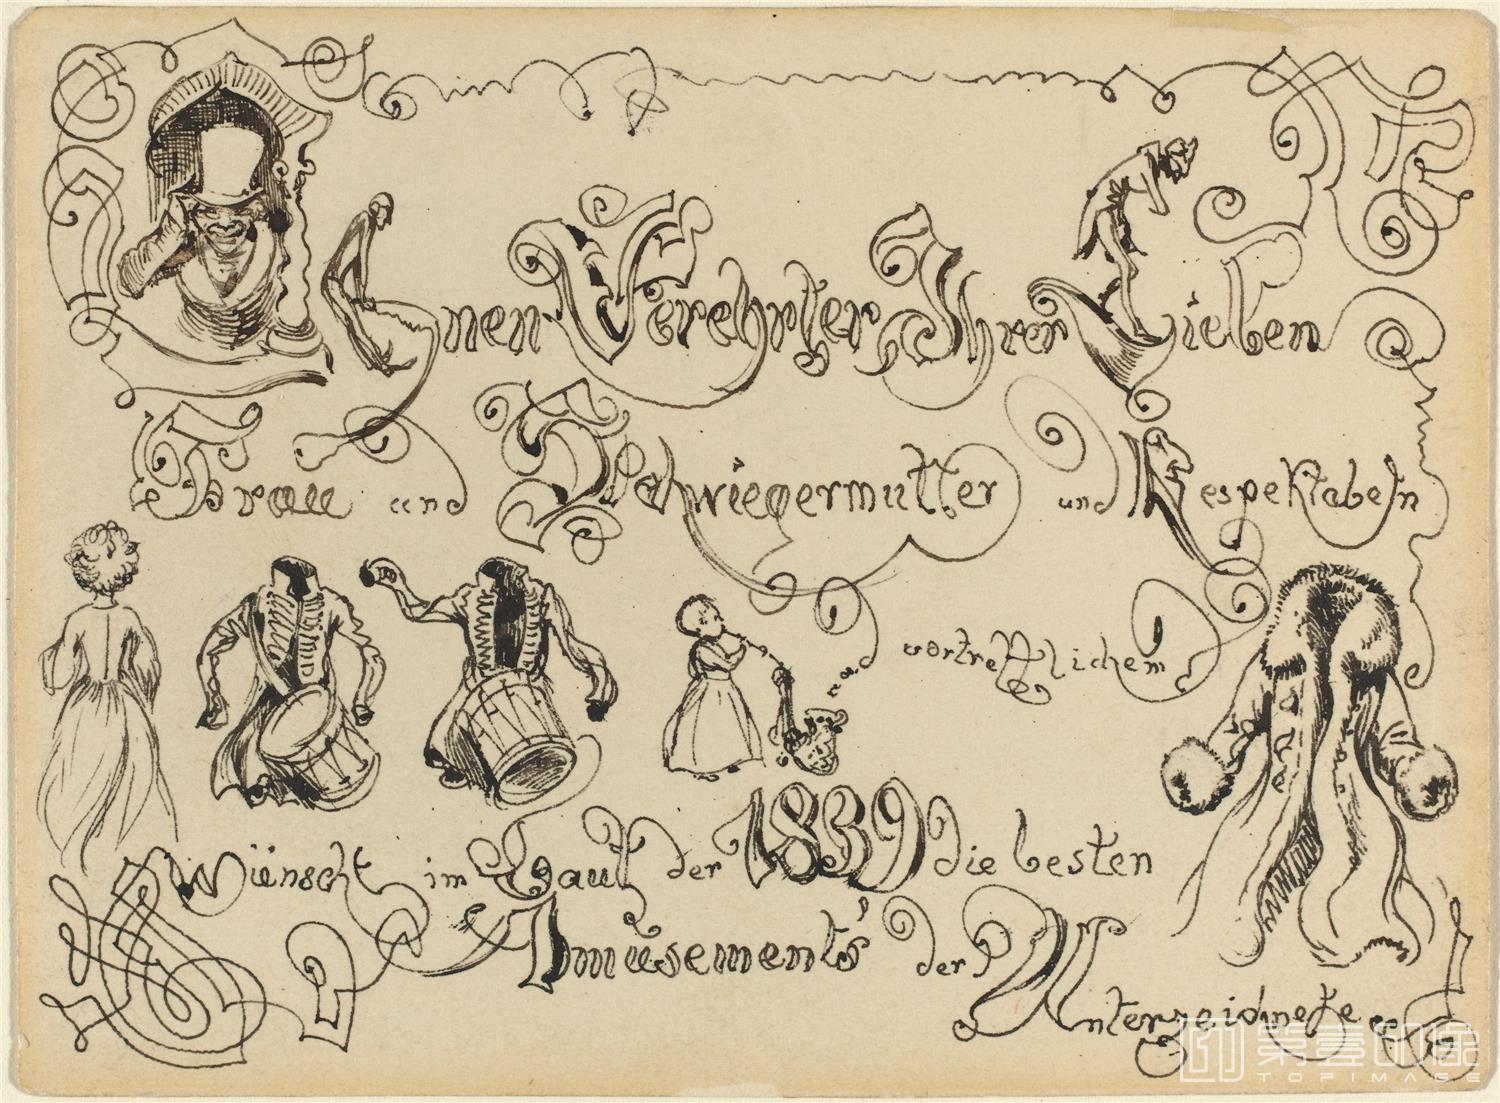 Ihnen Verehrter, Ihrer Lieben
Frau und Schwiegermutter und Respektabeln
vortrefflichem
Wünscht im Lauf der 1839 die besten
Amüsements' der Unterzeichnete
第壹印象
TOPIMAGE